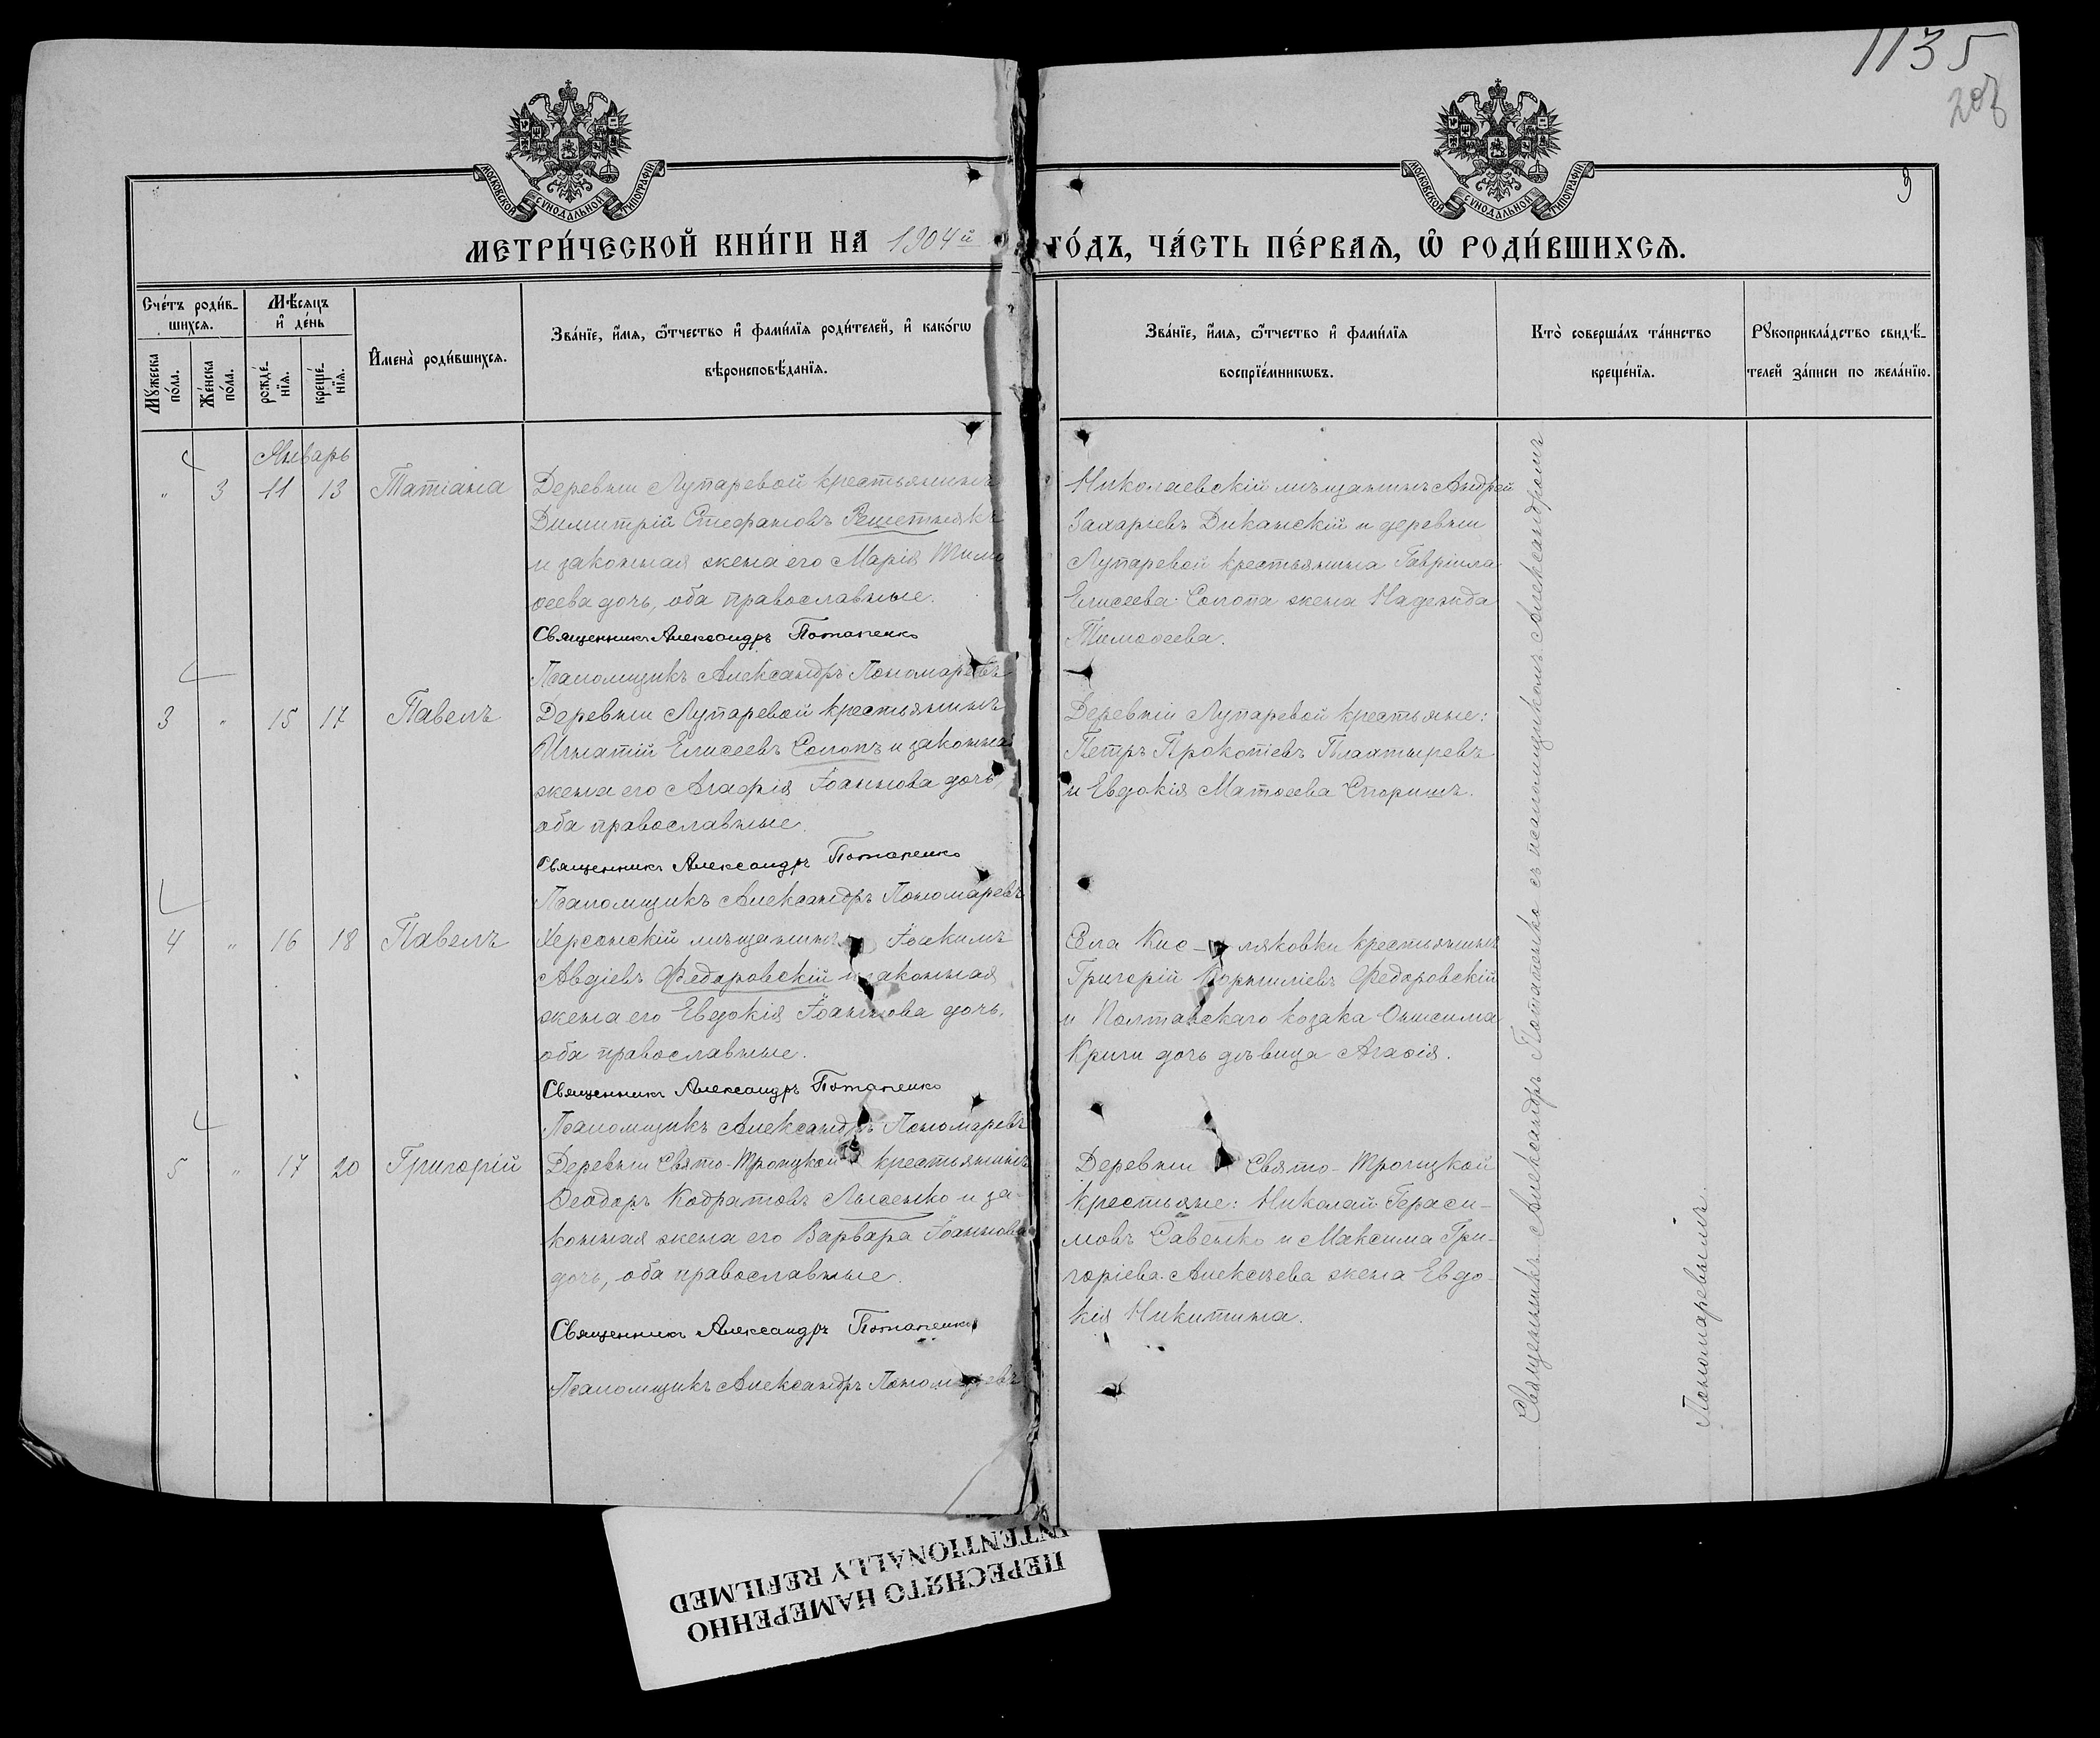 1135
208
МОСКОВСКОЙ СУНОДАЛЬНОЙ ТИПОГРАФІИ
МОСКОВСКОЙ СУНОДАЛЬНОЙ ТИПОГРАФІИ
МЕТРИ́ЧЕСКОЙ КНИ́ГИ НА 1904й
ГО́ДЪ, ЧА́СТЬ ПЕ́РВАЯ, Ѡ҆ РОДИ́ВШИХСЯ.
Сче́тъ роди́в-
шихся.
Мѣ́сяцъ
и҆ де́нь
Мꙋ́жеска
по́ла.
Же́нска
по́ла.
рожде́-
нїя.
креще́-
нїя.
И҆мена̀ роди́вшихся.
Зва́нїе, и҆́мя, ѻ҆́тчество и҆ фами́лїя роди́телей, и҆ како́гѡ
вѣроисповѣ́данїя.
Зва́нїе, и҆́мя, ѻ҆́тчество и҆ фами́лїя
воспрїе́мникѡвъ.
Кто̀ соверша́лъ та́инство
креще́нїя.
Рꙋкоприкла́дство свидѣ́-
телей за́писи по жела́нїю.
Январь
" 3 11 13 Татіана
Деревни Лупаревой крестьянинъ
Димитрій Стефановъ Решетнякъ
и законная жена его Марія Тимо
ѳеева дочь, оба православные.
Священникъ Александръ Потапенко
Псаломщикъ Александръ Пономаревъ
Николаевскій мѣщанинъ Андрей
Захаріевъ Диканскій и деревни
Лупаревой крестьянина Гавріила
Елисеева Солопа жена Надежда
Тимоѳеева.
3 " 15 17 Павелъ
Деревни Лупаревой крестьянинъ
Игнатій Елисеевъ Солопъ и законна
жена его Агафія Іоаннова дочь,
оба православные.
Священникъ Александръ Потапенко
Псаломщикъ Александръ Пономаревъ
Деревни Лупаревой крестьяне:
Петръ Прокопіевъ Плахтыревъ
и Евдокія Матѳеева Спориш.
4 " 16 18 Павелъ
Херсонскій мѣщанинъ Іоакимъ
Авдіевъ Федоровскій и законная
жена его Евдокія Іоаннова дочь,
оба православные.
Священникъ Александръ Потапенко
Псаломщикъ Александръ Пономаревъ
Села Кис-ляковки крестьянинъ
Григорій Корниліевъ Федоровскій
и Полтавскаго козака Онисима
Криги дочь дѣвица Агаѳія.
5 " 17 20 Григорій
Деревни Свято-Троицкой крестьянинъ
Ѳеодоръ Кодратовъ Лысенко и за-
конная жена его Варвара Іоаннова
дочь, оба православные.
Священникъ Александръ Потапенко
Псаломщикъ Александръ Пономаревъ
Деревни Свято-Троицкой
крестьяне: Николай Гераси-
мовъ Савенко и Максима Гри-
горіева Алексѣева жена Евдо-
кія Никитина.
Священникъ Александръ Потапенко съ псаломщикомъ Александромъ
Пономаревымъ.
ПЕРЕСНЯТО НАМЕРЕННО
INTENTIONALLY REFILMED